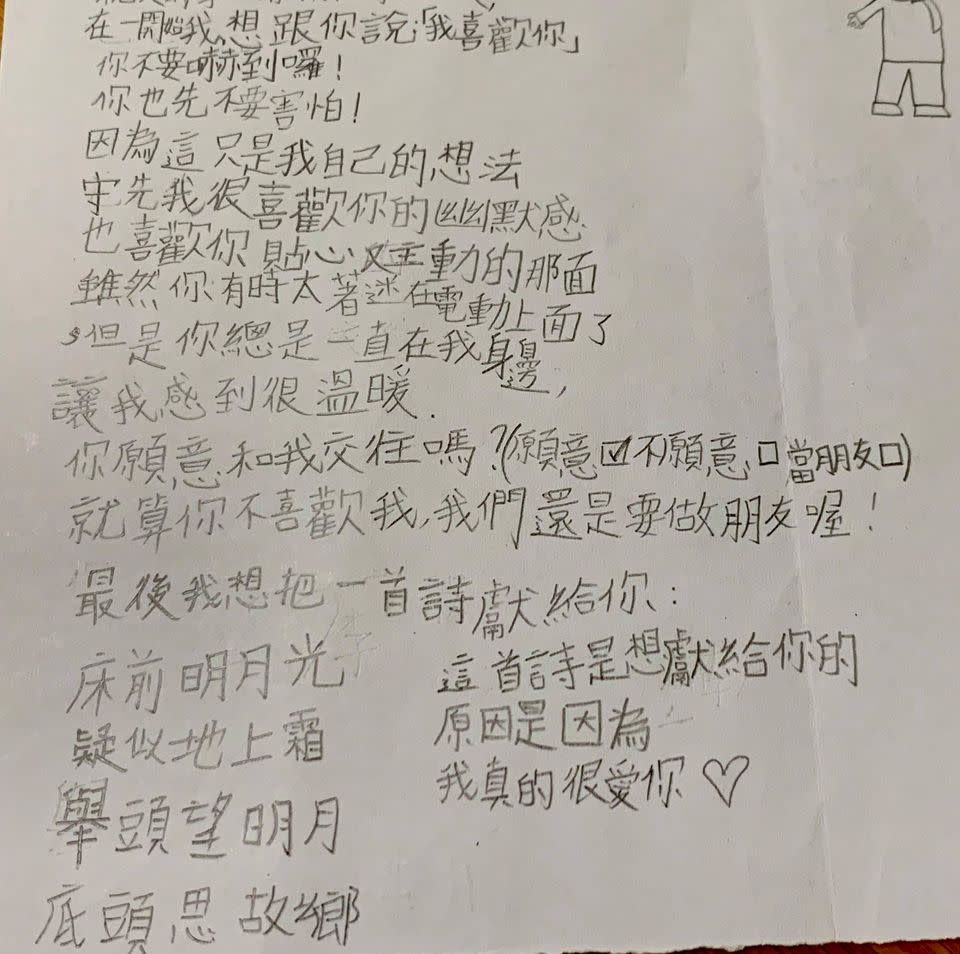 在一開始我想跟你說:「我喜歡你」
你不要嚇到囉！
你也先不要害怕！
因為這只是我自己的想法
我很喜歡你的幽默感
也喜歡你貼心又主動的那面
雖然你有時太著迷在電動上面了
，但是你總是一直在我身邊，
讓我感到很溫暖.
你願意和我交往嗎？(願意☑不願意□當朋友□)
就算你不喜歡我，我們還是要做朋友喔！
最後我想把一首詩獻給你：
床前明月光
疑似地上霜
舉頭望明月
底頭思故鄉
這首詩是想獻給你的
原因是因為
我真的很愛你♡